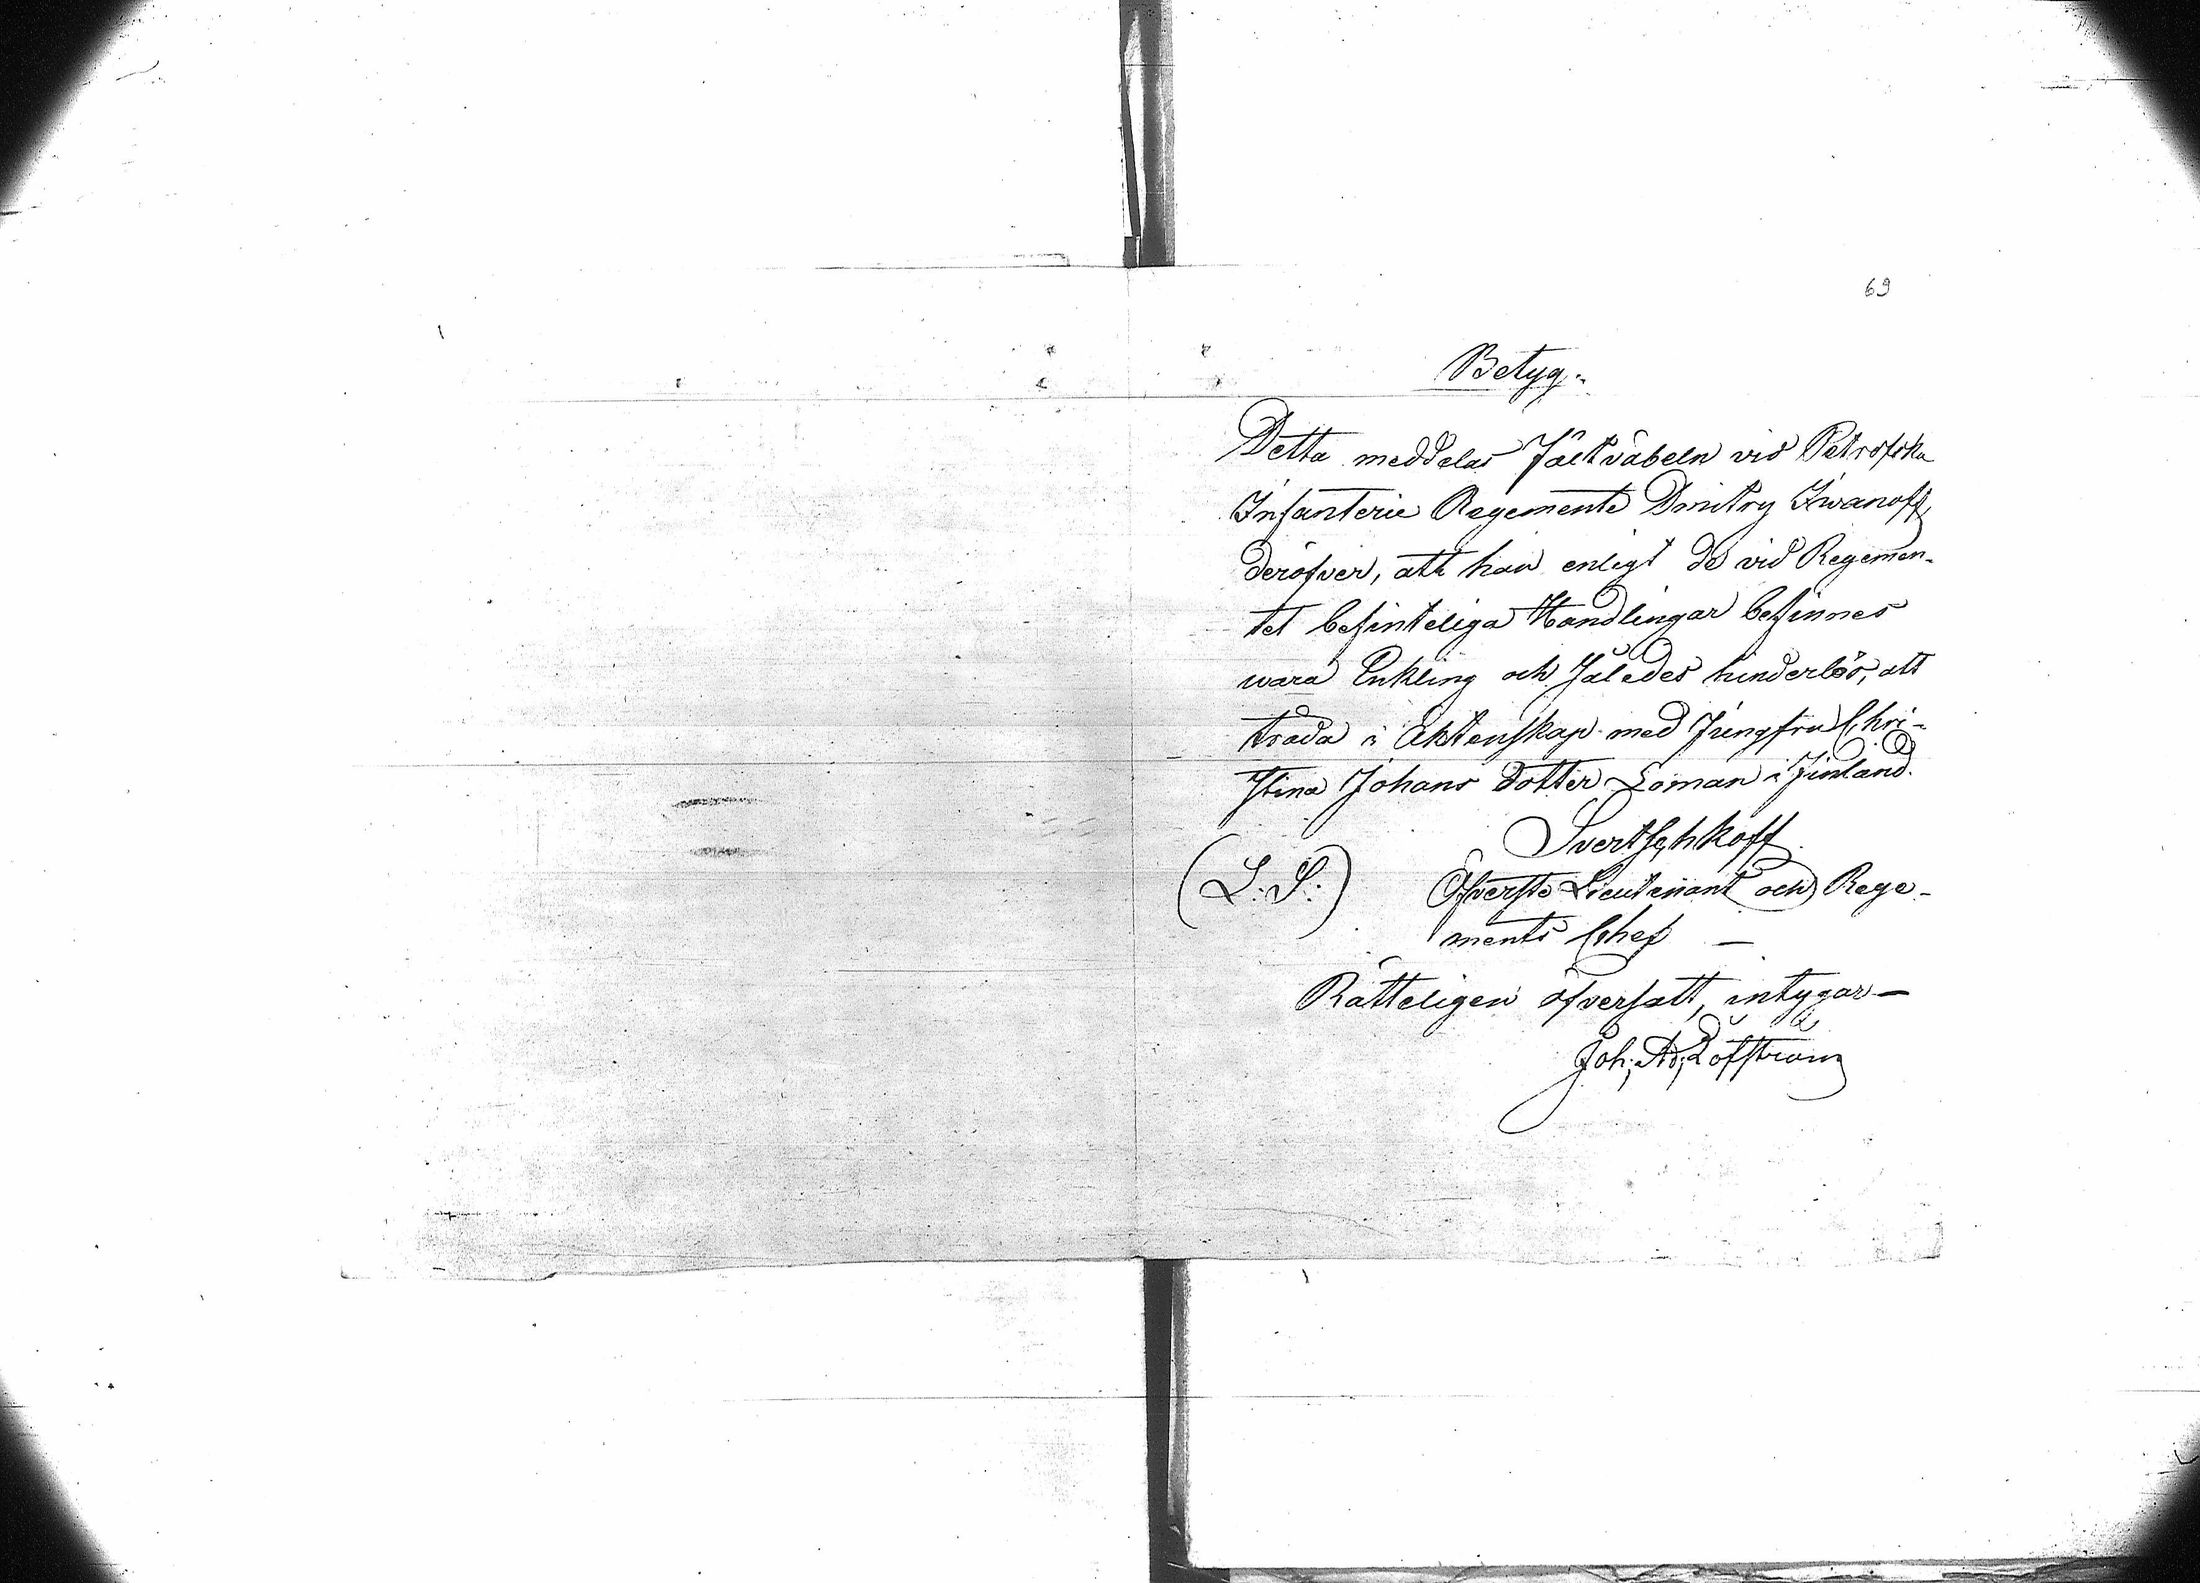 69
Betyg.
Detta meddelas Fältväbeln vid Petrofska
Infanterie Regemente Dmitry Iwanoff,
deröfver, att han enligt de vid Regemen-
tet befinteliga Handlingar befinnes
wara Enkling och Således hinderlös, att
träda i Äktenskap med Jungfru Chri-
stina Johans dotter Loman i Finland.
Svertschkoff
(L: S:) Öfverste Lieutenant och Rege-
ments Chef —
Rätteligen öfversatt, intygar —
Joh: Ad: Löfström